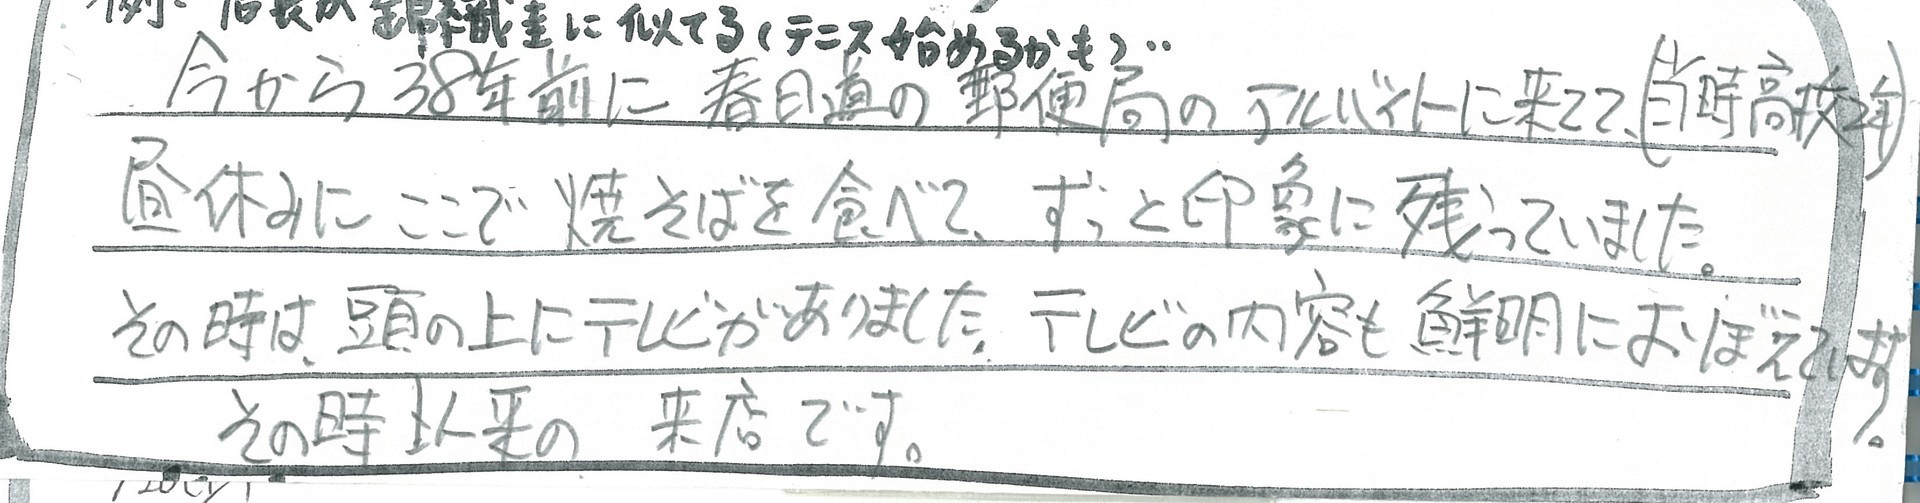 例: 店長が錦織圭に似てる(テニス始めるかも)‥
今から38年前に春日道の郵便局のアルバイトに来てて、(当時高校2年)
昼休みにここで焼そばを食べて、ずっと印象に残っていました。
その時は、頭の上にテレビがありました。テレビの内容も鮮明におぼえています。
その時以来の来店です。